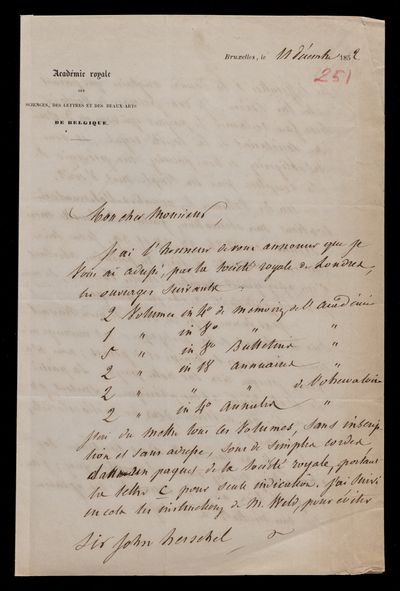 Bruxelles, le 11 décembre 1852
251
Académie royale
DES
SCIENCES, DES LETTRES ET DES BEAUX-ARTS
DE BELGIQUE.
Mon cher Monsieur,
J'ai l'honneur de vous annoncer que je
vous ai adressé, par la Société royale de Londres,
les ouvrages suivants
2 Volumes in 4° de mémoires de l'académie
1 " in 8° " "
5 " in 8° Bulletins "
2 " in 18 annuaires "
2 " " " de l'observatoire
2 " in 4° Annales "
j'ai du mettre tous ces volumes, sans inscrip-
tion et sans adresse, sous de simples cordes
dans un paquet de la Société royale, portant
la lettre C pour seule indication. J'ai suivi
en cela les instructions de M. Weld, pour éviter
Sir John Herschel